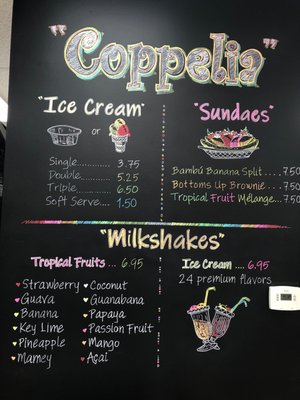 "Coppelia"
"Ice Cream"
or
Single............ 3.75
Double........... 5.25
Triple............ 6.50
Soft Serve.... 1.50
"Sundaes"
Bambú Banana Split....7.50
Bottoms Up Brownie....7.50
Tropical Fruit Mélange...7.50
"Milkshakes"
Tropical Fruits... 6.95
Strawberry
Guava
Banana
Key Lime
Pineapple
Mamey
Coconut
Guanabana
Papaya
Passion Fruit
Mango
Açai
Ice Cream .... 6.95
24 premium flavors